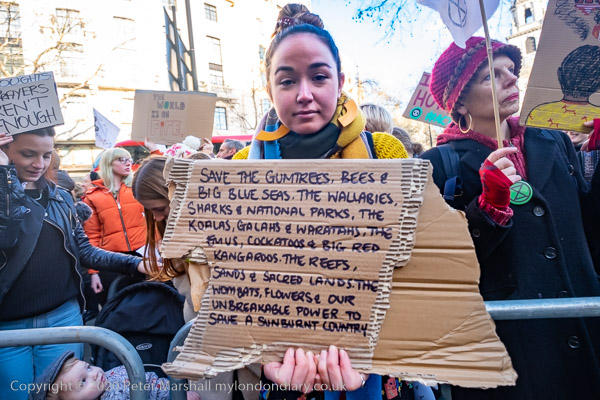 THOUGHTS &
PRAYERS
AREN'T
ENOUGH
THE WORLD
IS ON
FIRE
SAVE THE GUMTREES, BEES &
BIG BLUE SEAS. THE WALLABIES,
SHARKS & NATIONAL PARKS, THE
KOALAS, GALAHS & WARATAHS. THE
EMUS, COCKATOOS & BIG RED
KANGAROOS. THE REEFS,
SANDS & SACRED LANDS. THE
WOMBATS, FLOWERS & OUR
UNBREAKABLE POWER TO
SAVE A SUNBURNT COUNTRY.
Copyright © 2020 Peter Marshall mylondondiary.co.uk